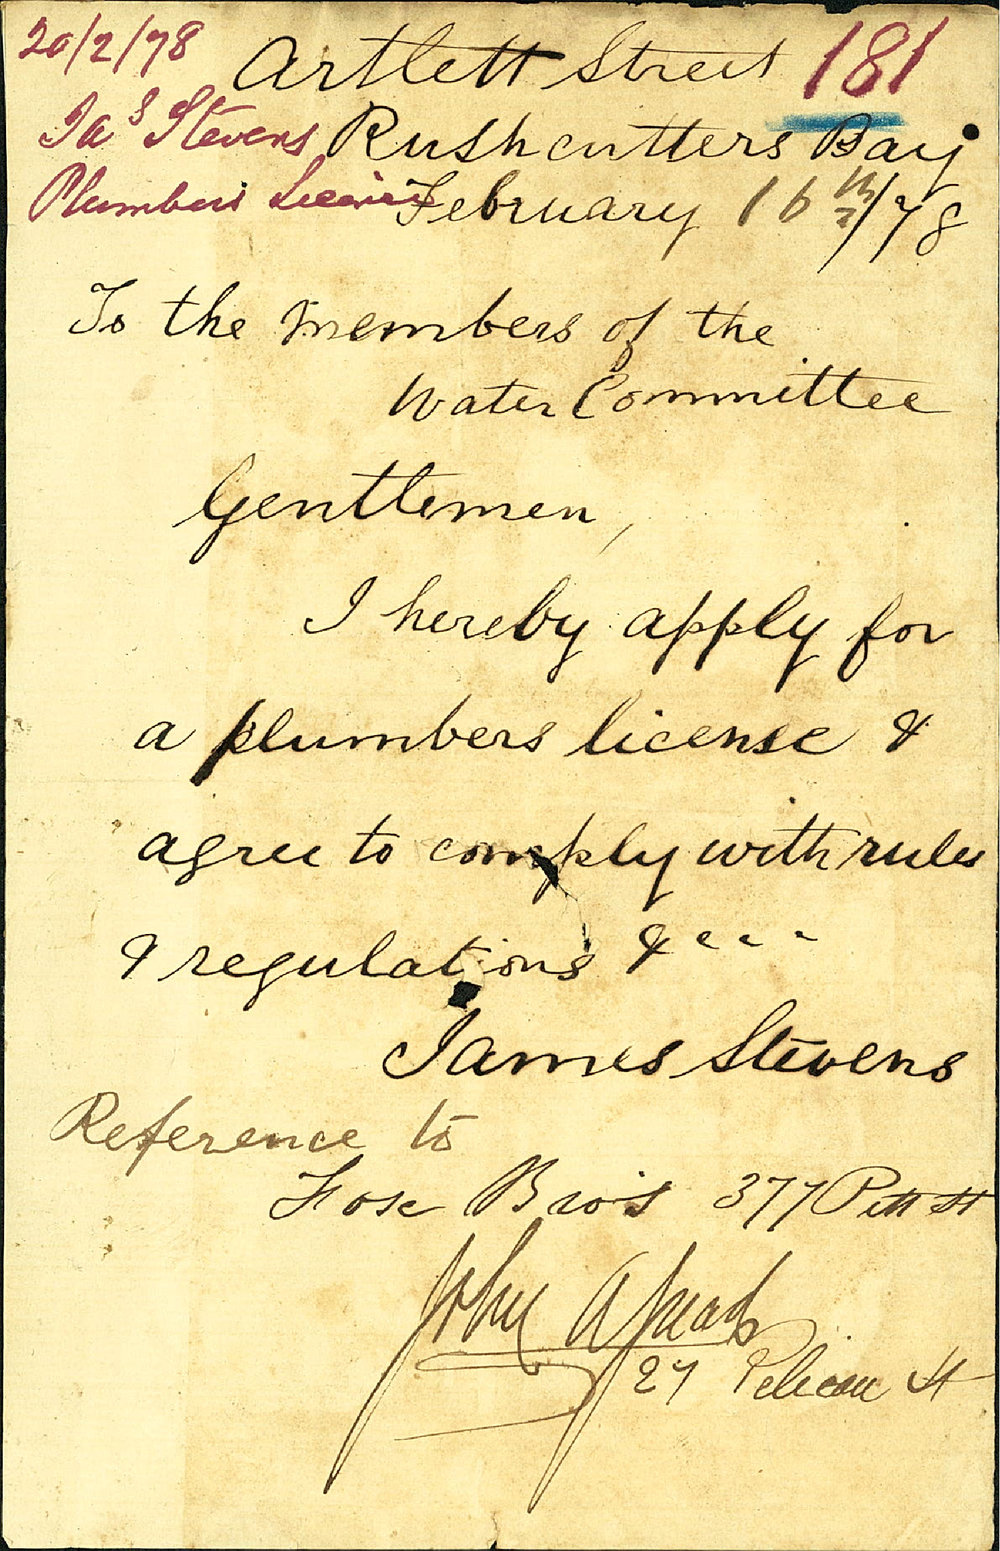 20/2/78
Jas Stevens
Plumbers
181
Artlett Street
Rushcutters Bay
February 16th/78
To the members of the
Water Committee
Gentlemen,
I hereby apply for
a plumbers license &
agree to comply with rules
& regulations &ccc
James Stevens
Reference to
Bros 377 Pitt St
John A
27 Pelican St